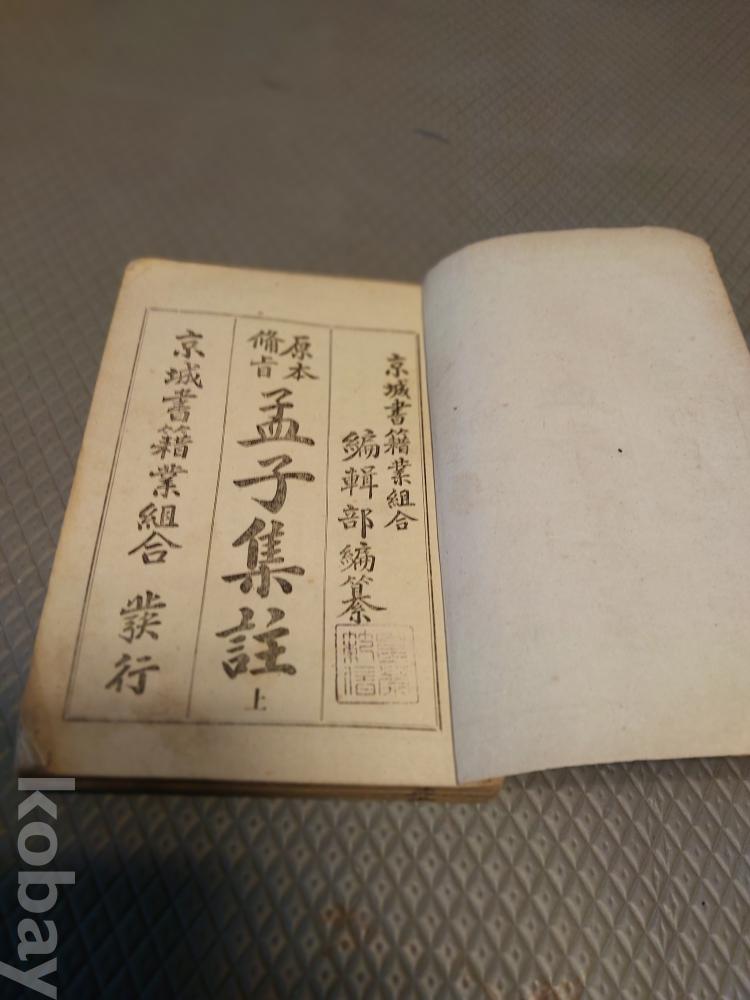 京城書籍業組合
編輯部編纂
原本
備旨
孟子集註 上
京城書籍業組合 發行
kobay